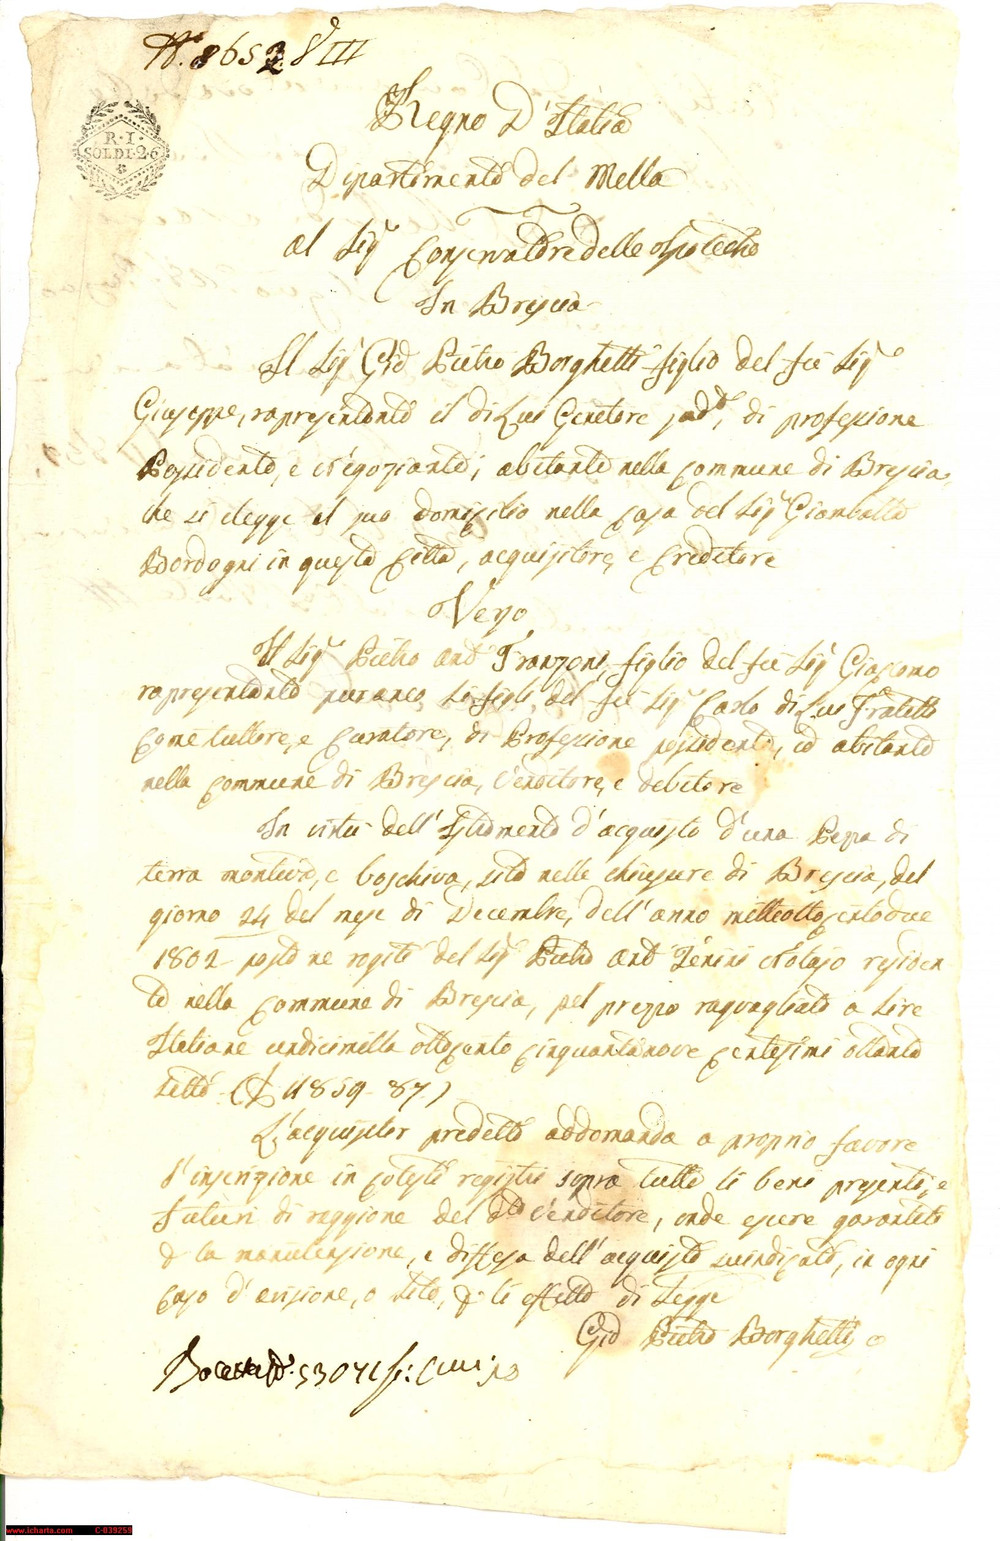 R. I.
SOLDI. 2. 6
Regno D'Italia
Dipartimento del Mella
Al Sigr Conservatore delle Ipoteche
In Brescia
Il Sigr Gio Pietro Borghetti figlio del fù Sigr
Giuseppe, rapresentante il di Lui Genitore sudd°, di professione
Possidente, e Negoziante, abitante nella commune di Brescia,
che si elegge il suo domicilio nella casa del Sigr Giambatta
Bordogni in questa Città, acquisitore, e Creditore
Verso
Il Sigr Pietro Ant° Franzoni, figlio del fù Sigr Giacomo
rapresentante pur anco li figli del fù Sigr Carlo di Lui Fratello
come tuttore, e Curatore, di Professione possidente, ed abitante
nella commune di Brescia, Venditore, e debitore
In virtù dell'Istromento d'acquisto d'una Pezza di
terra montiva, e boschiva, sita nelle chiusure di Brescia, del
giorno 24 del mese di Decembre, dell'anno milleottocentodue
1802 posto ne rogiti del Sigr Pietro Ant° Notajo residen
te nella commune di Brescia, pel prezzo raguagliato a Lire
Italiane undicimilla ottocento cinquantanove centesimi ottanta
sette (£ 11859. 87.)
L'acquisitor predetto addomanda a proprio favore
l'inscrizione in cotesti registri sopra tutti li beni presenti, e
futuri di raggione del d° Venditore, onde essere garantito
la manutensione, e diffesa dell'acquisto, in ogni
caso d'evisione, o lite, li effetti di Legge
Gio Pietro Borghetti
www.icharta.com C-039259